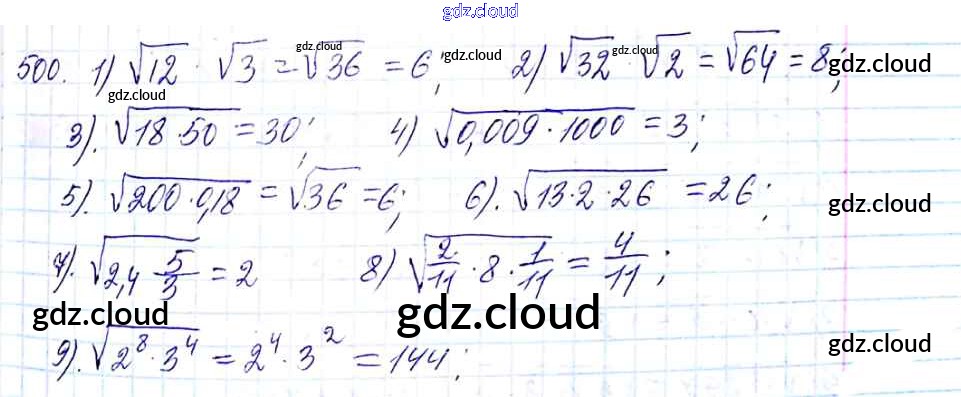 gdz.cloud
500. 1) √12 · √3 = √36 = 6; 2) √32 · √2 = √64 = 8;
gdz.cloud gdz.cloud gdz.cloud gdz.cloud
gdz.cloud
3). √18·50 = 30; 4) √0,009·1000 = 3;
5). √200·0,18 = √36 = 6; 6). √13·2·26 = 26;
gdz.cloud
7). √2,4 5/3 = 2 8) √2/11 · 8 · 1/11 = 4/11;
gdz.cloud gdz.cloud
9). √2⁸·3⁴ = 2⁴·3² = 144;
gdz.cloud